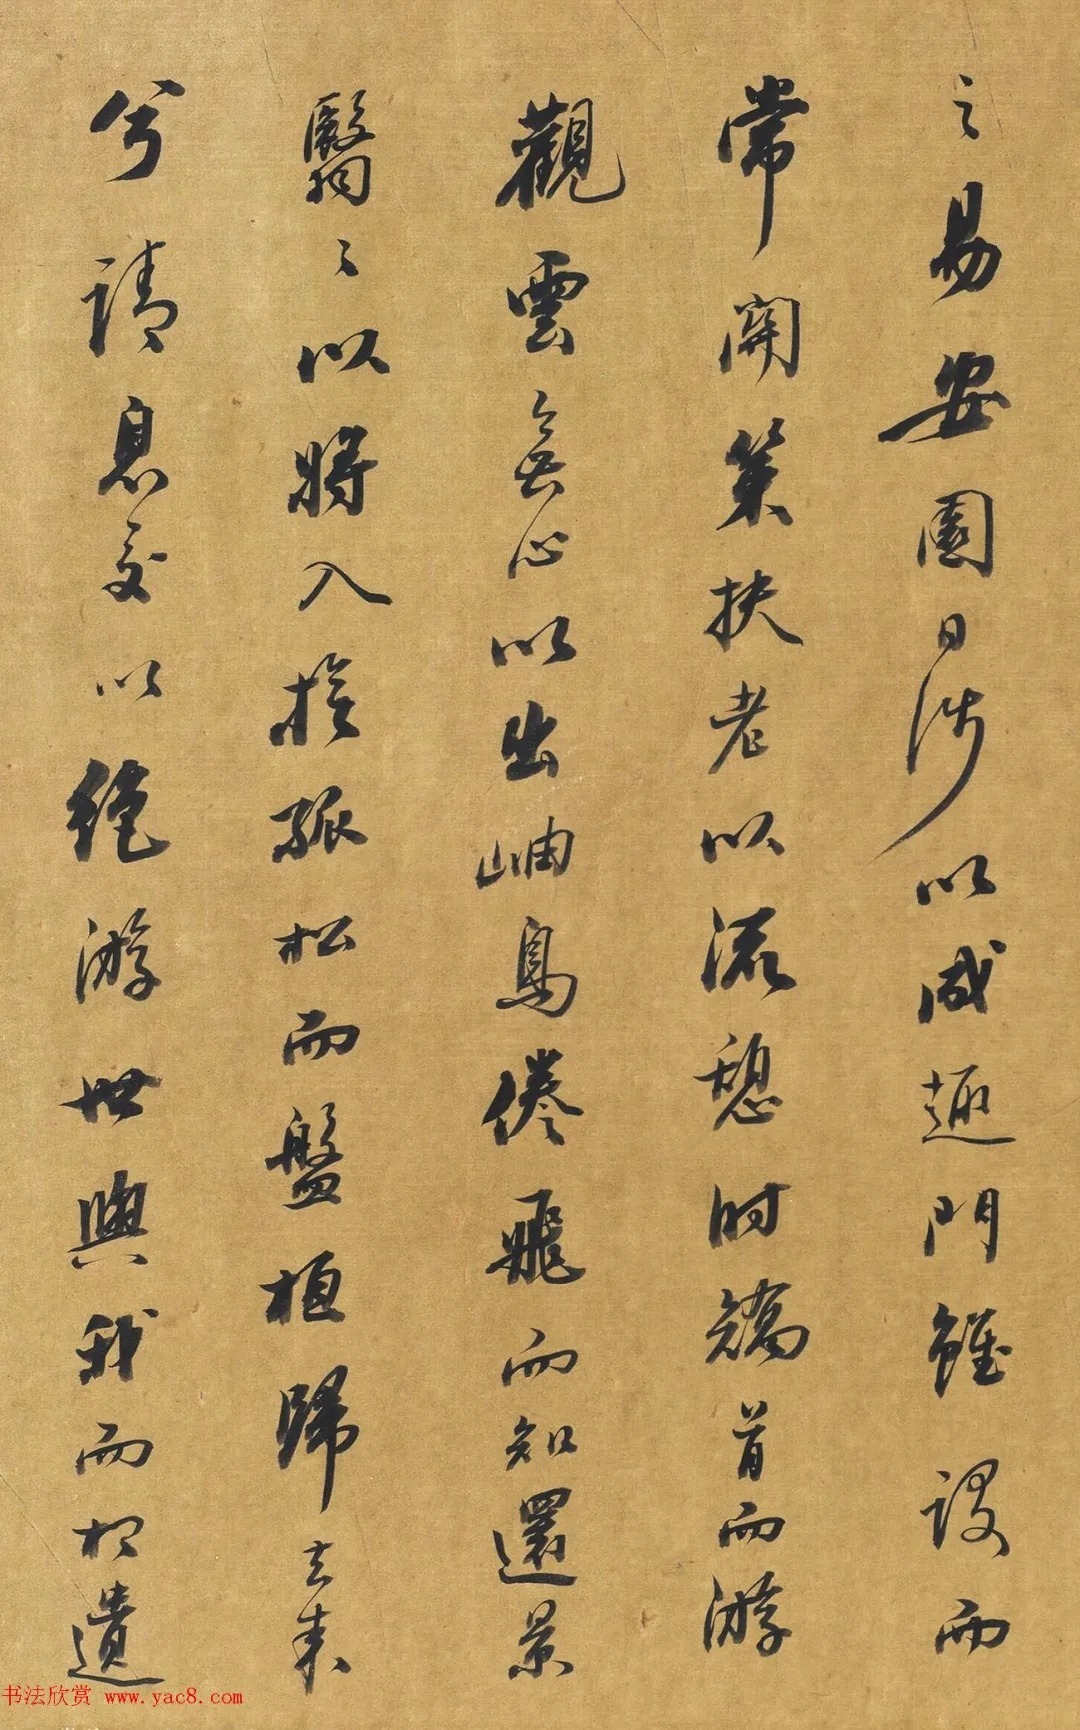 之易安園日涉以成趣門雖設而
常開策扶老以流憩時矯首而游
觀雲無心以出岫鳥倦飛而知還景
翳〻以將入撫孤松而盤桓歸去来
兮請息交以絕游世與我而相遺
书法欣赏 www.yac8.com